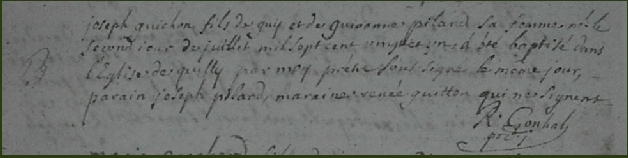 joseph guichon fils de guy et de guionne pilard sa femme né le
second jour de juillet mil sept cent vingt et un a été baptisé dans
B l'Eglise de quilly par moy prêtre sous signé le même jour,
parain joseph pilard, maraine renée guitton qui ne signent
R. Gonhal